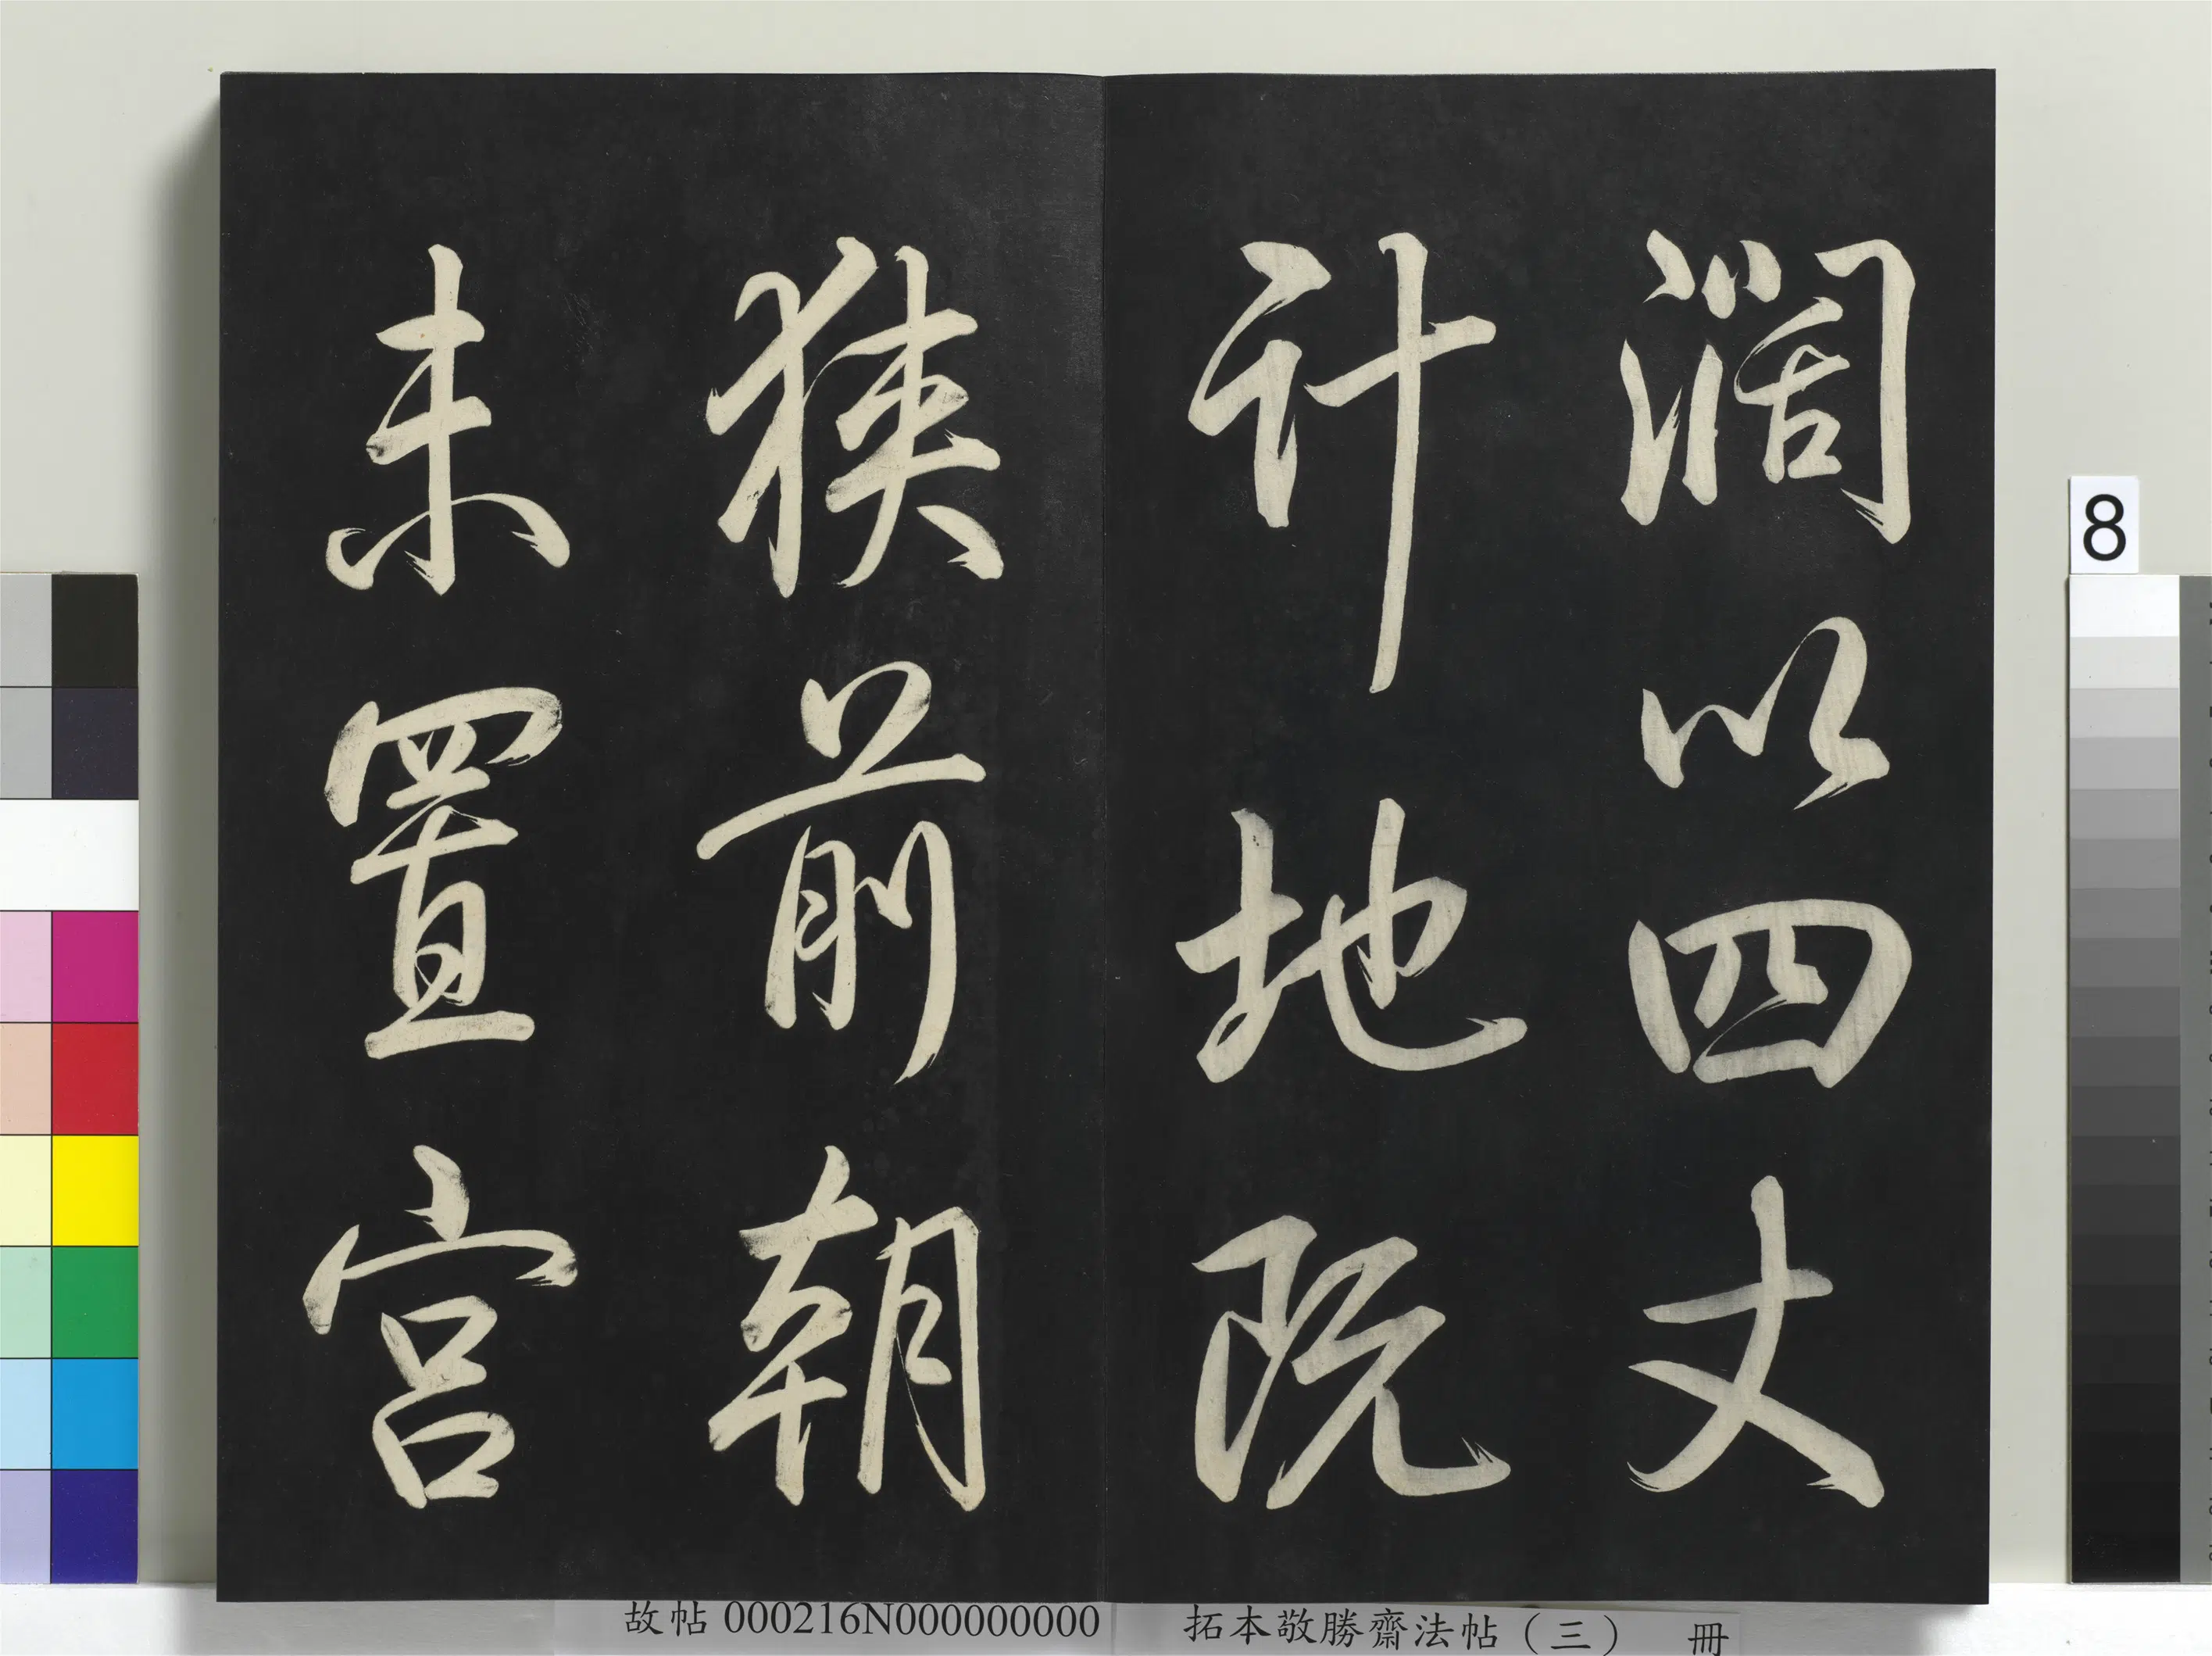 闊以四丈
計地既
狹前朝
未置宮
8
故帖000216N000000000
拓本敬勝齋法帖（三） 冊